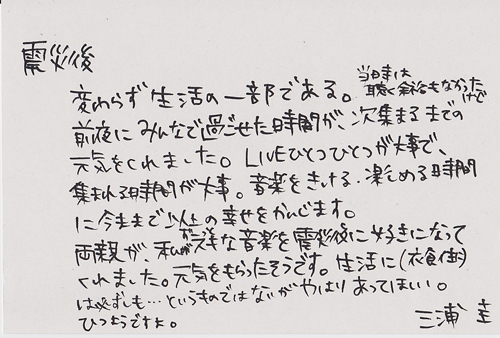 震災後
変わらず生活の一部である。当時は
聴く余裕もなかったけど
前夜にみんなで過ごせた時間が、次集まるまでの
元気をくれました。LIVEひとつひとつが大事で、
集まれる時間が大事。音楽をきける、楽しめる時間
に今まで以上の幸せをかんじます。
両親が、私がスキな音楽を震災後に好きになって
くれました。元気をもらったそうです。生活に(衣食住)
は必ずしも…というものではないがやはりあってほしい。
ひつようですよ。
三浦 圭